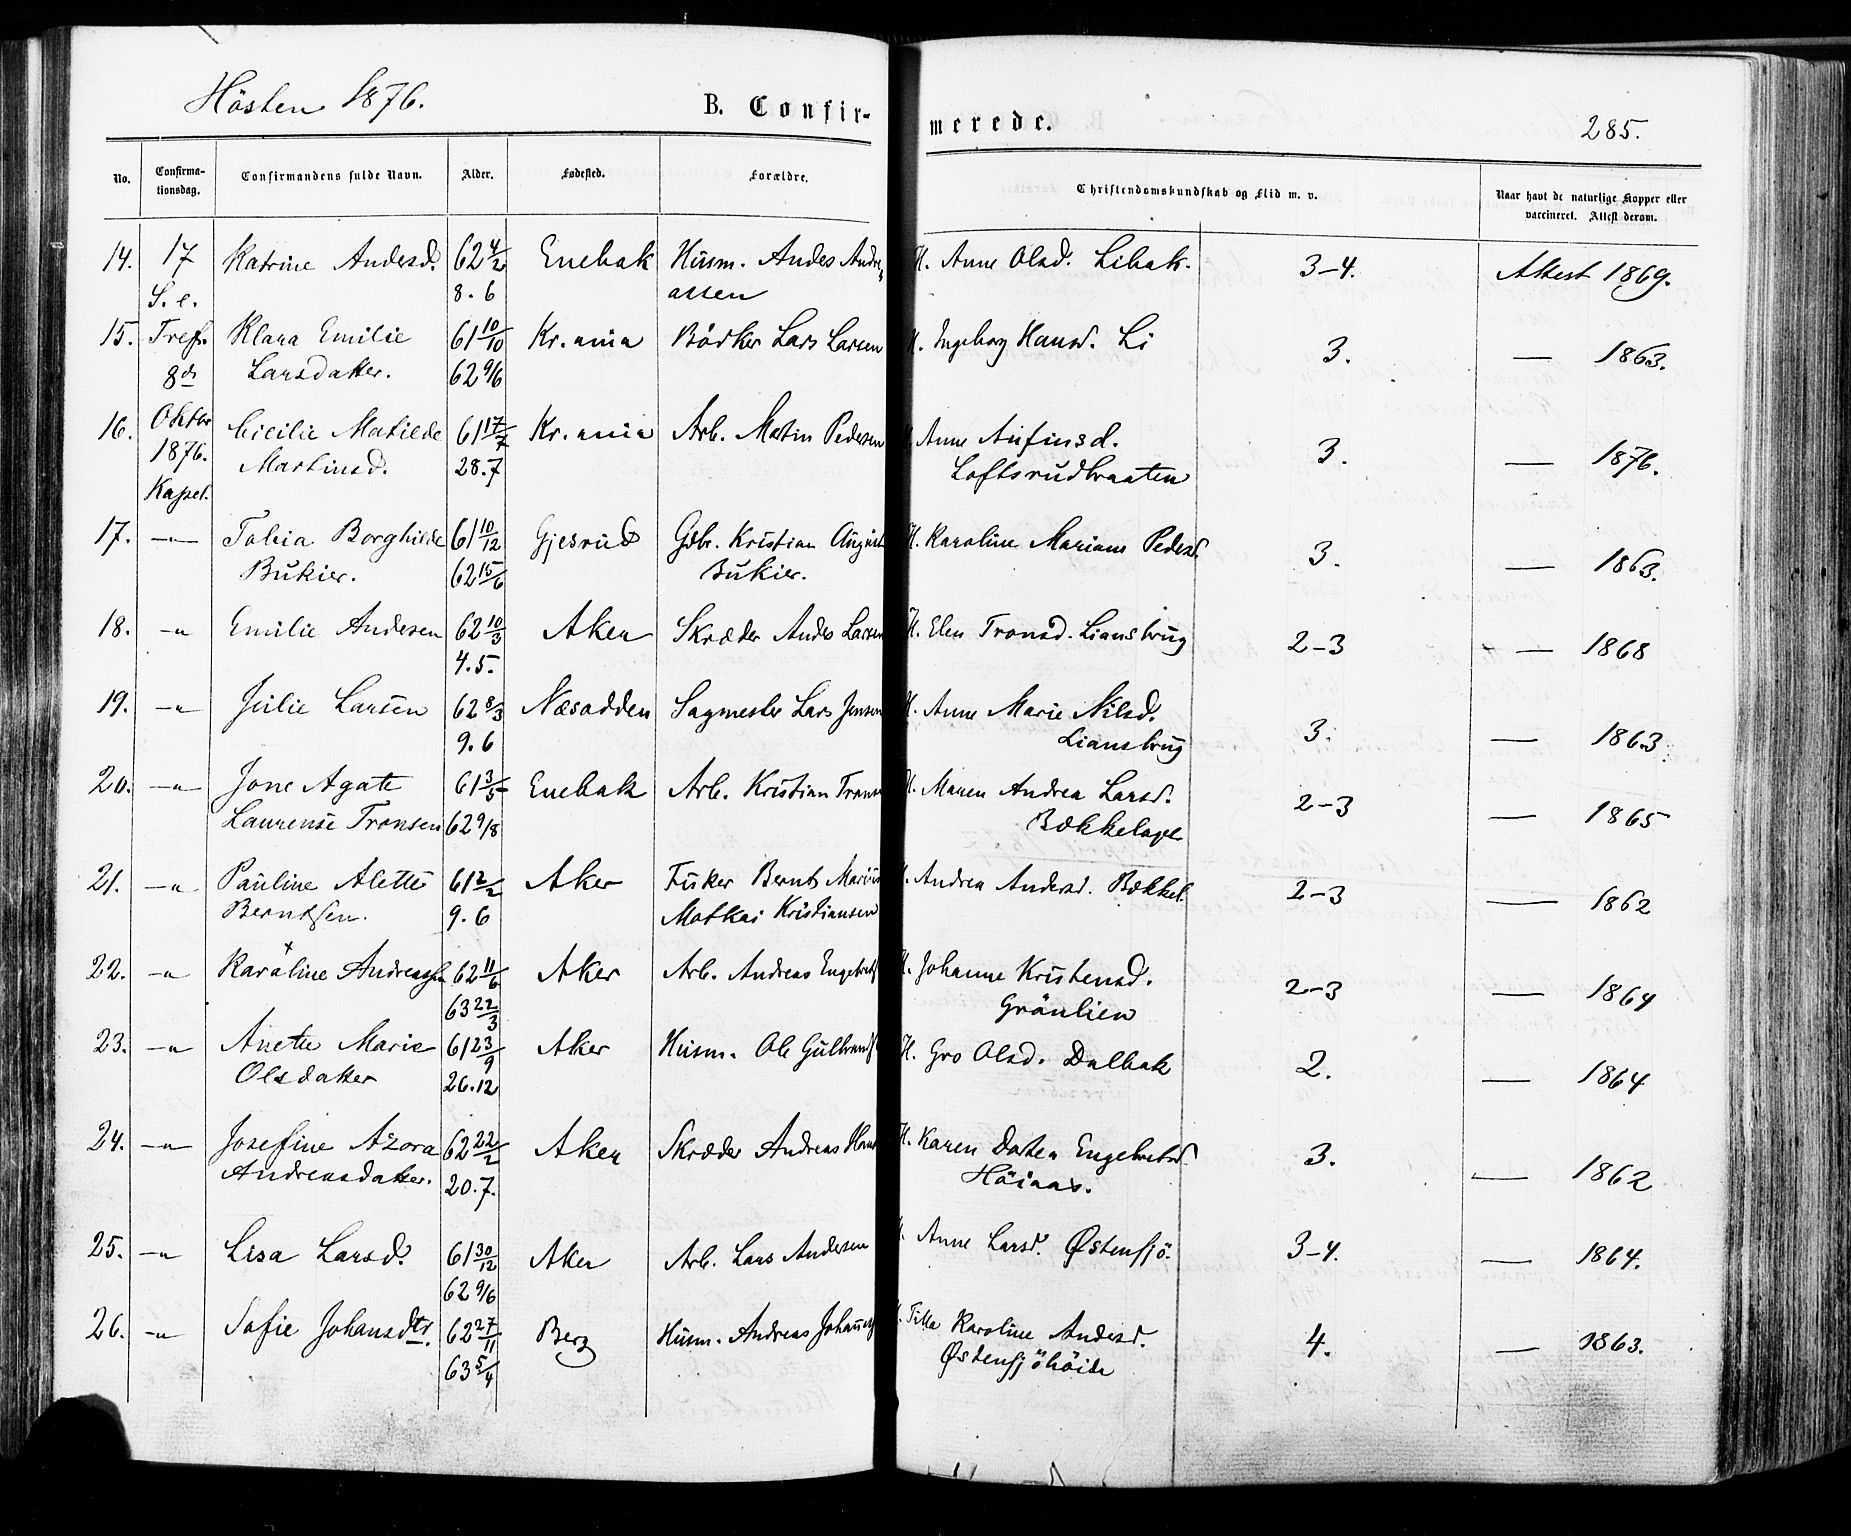 Hösten 1876.
B. Confir-
merede.
285.
No.
Confirma-
tionsdag.
Confirmandens fulde Navn.
Alder.
Fødested.
Forældre.
Christendomskundskab og Flid m. v.
Naar havt de naturlige Kopper eller
vaccineret. Attest derom.
14. 17 Katrine Andersd. 62 4/2 Enebak Husm. Andes Andre- H. Anne Olsd. Libak. 3-4. Attest 1869.
S. e. 8. 6 assen
15. Tref. Klara Emilie 61 10/10 Kr.ania Bödker Lars Larsen H. Ingeborg Hansd. Li 3. — 1863.
8de Larsdatter. 62 9/6
16. Oktbr Cicilie Matilde 61 17/7 Kr.ania Arb. Martin Pedersen H. Anne Anfinsd. 3. — 1876.
1876. Martinsd. 28.7 Loftsrudbraaten
Kapel.
17. —"— Tobia Borghilde 61 10/12 Gjesrud Gdbr. Kristian August H. Karoline Mariane Pedersd. 3. — 1863.
Bukier. 62 15/6 Bukier.
18. —" Emilie Andersen 62 10/3 Aker Skræder Andes Larsen H. Elen Tronsd. Liansbrug 2-3 — 1868
4.5.
19. —" Julie Larsen 62 8/3 Næsodden Sagmester Lars Jensen H. Anne Marie Nilsd. 3. — 1863
9.6 Liansbrug
20. —" Jone Agate 61 3/5 Enebak Arb. Kristian Trons H. Maren Andrea Larsd. 2-3 — 1865
Laurense Tronsen 62 9/8 Bækkelaget
21. —" Pauline Alette 61 2/2 Aker Fisker Bernt Marius H. Andrea Andersd. Bækkel. 2-3 — 1862
Berntsen. 9.6 Matkai Kristiansen
22. —" Karoline Andreassen 62 11/6 Aker Arb. Andreas Engebrets H. Johanne Kristensd. 2-3 — 1864
63 22/3 Grönlien
23. —" Anette Marie 61 23/9 Aker Husm. Ole Gulbrands H. Gro Olsd. Dalbak 2. — 1864
Olsdatter 26.12
24. —" Josefine Azora 62 22/2 Aker Skræder Andreas Hans H. Karen Dortea Engebretsd. 3. — 1862
Andreasdatter. 20.7. Höiaas.
25. —" Lisa Larsd. 61 30/12 Aker Arb. Lars Andersen H. Anne Larsd. Østensjö. 3-4. — 1864.
62 9/6
26. —" Sofie Johansdtr. 62 27/11 Berg Husm. Andreas Johannes H. Tilla Karoline Andersd. 4. — 1863.
63 5/4 Østensjöhöide